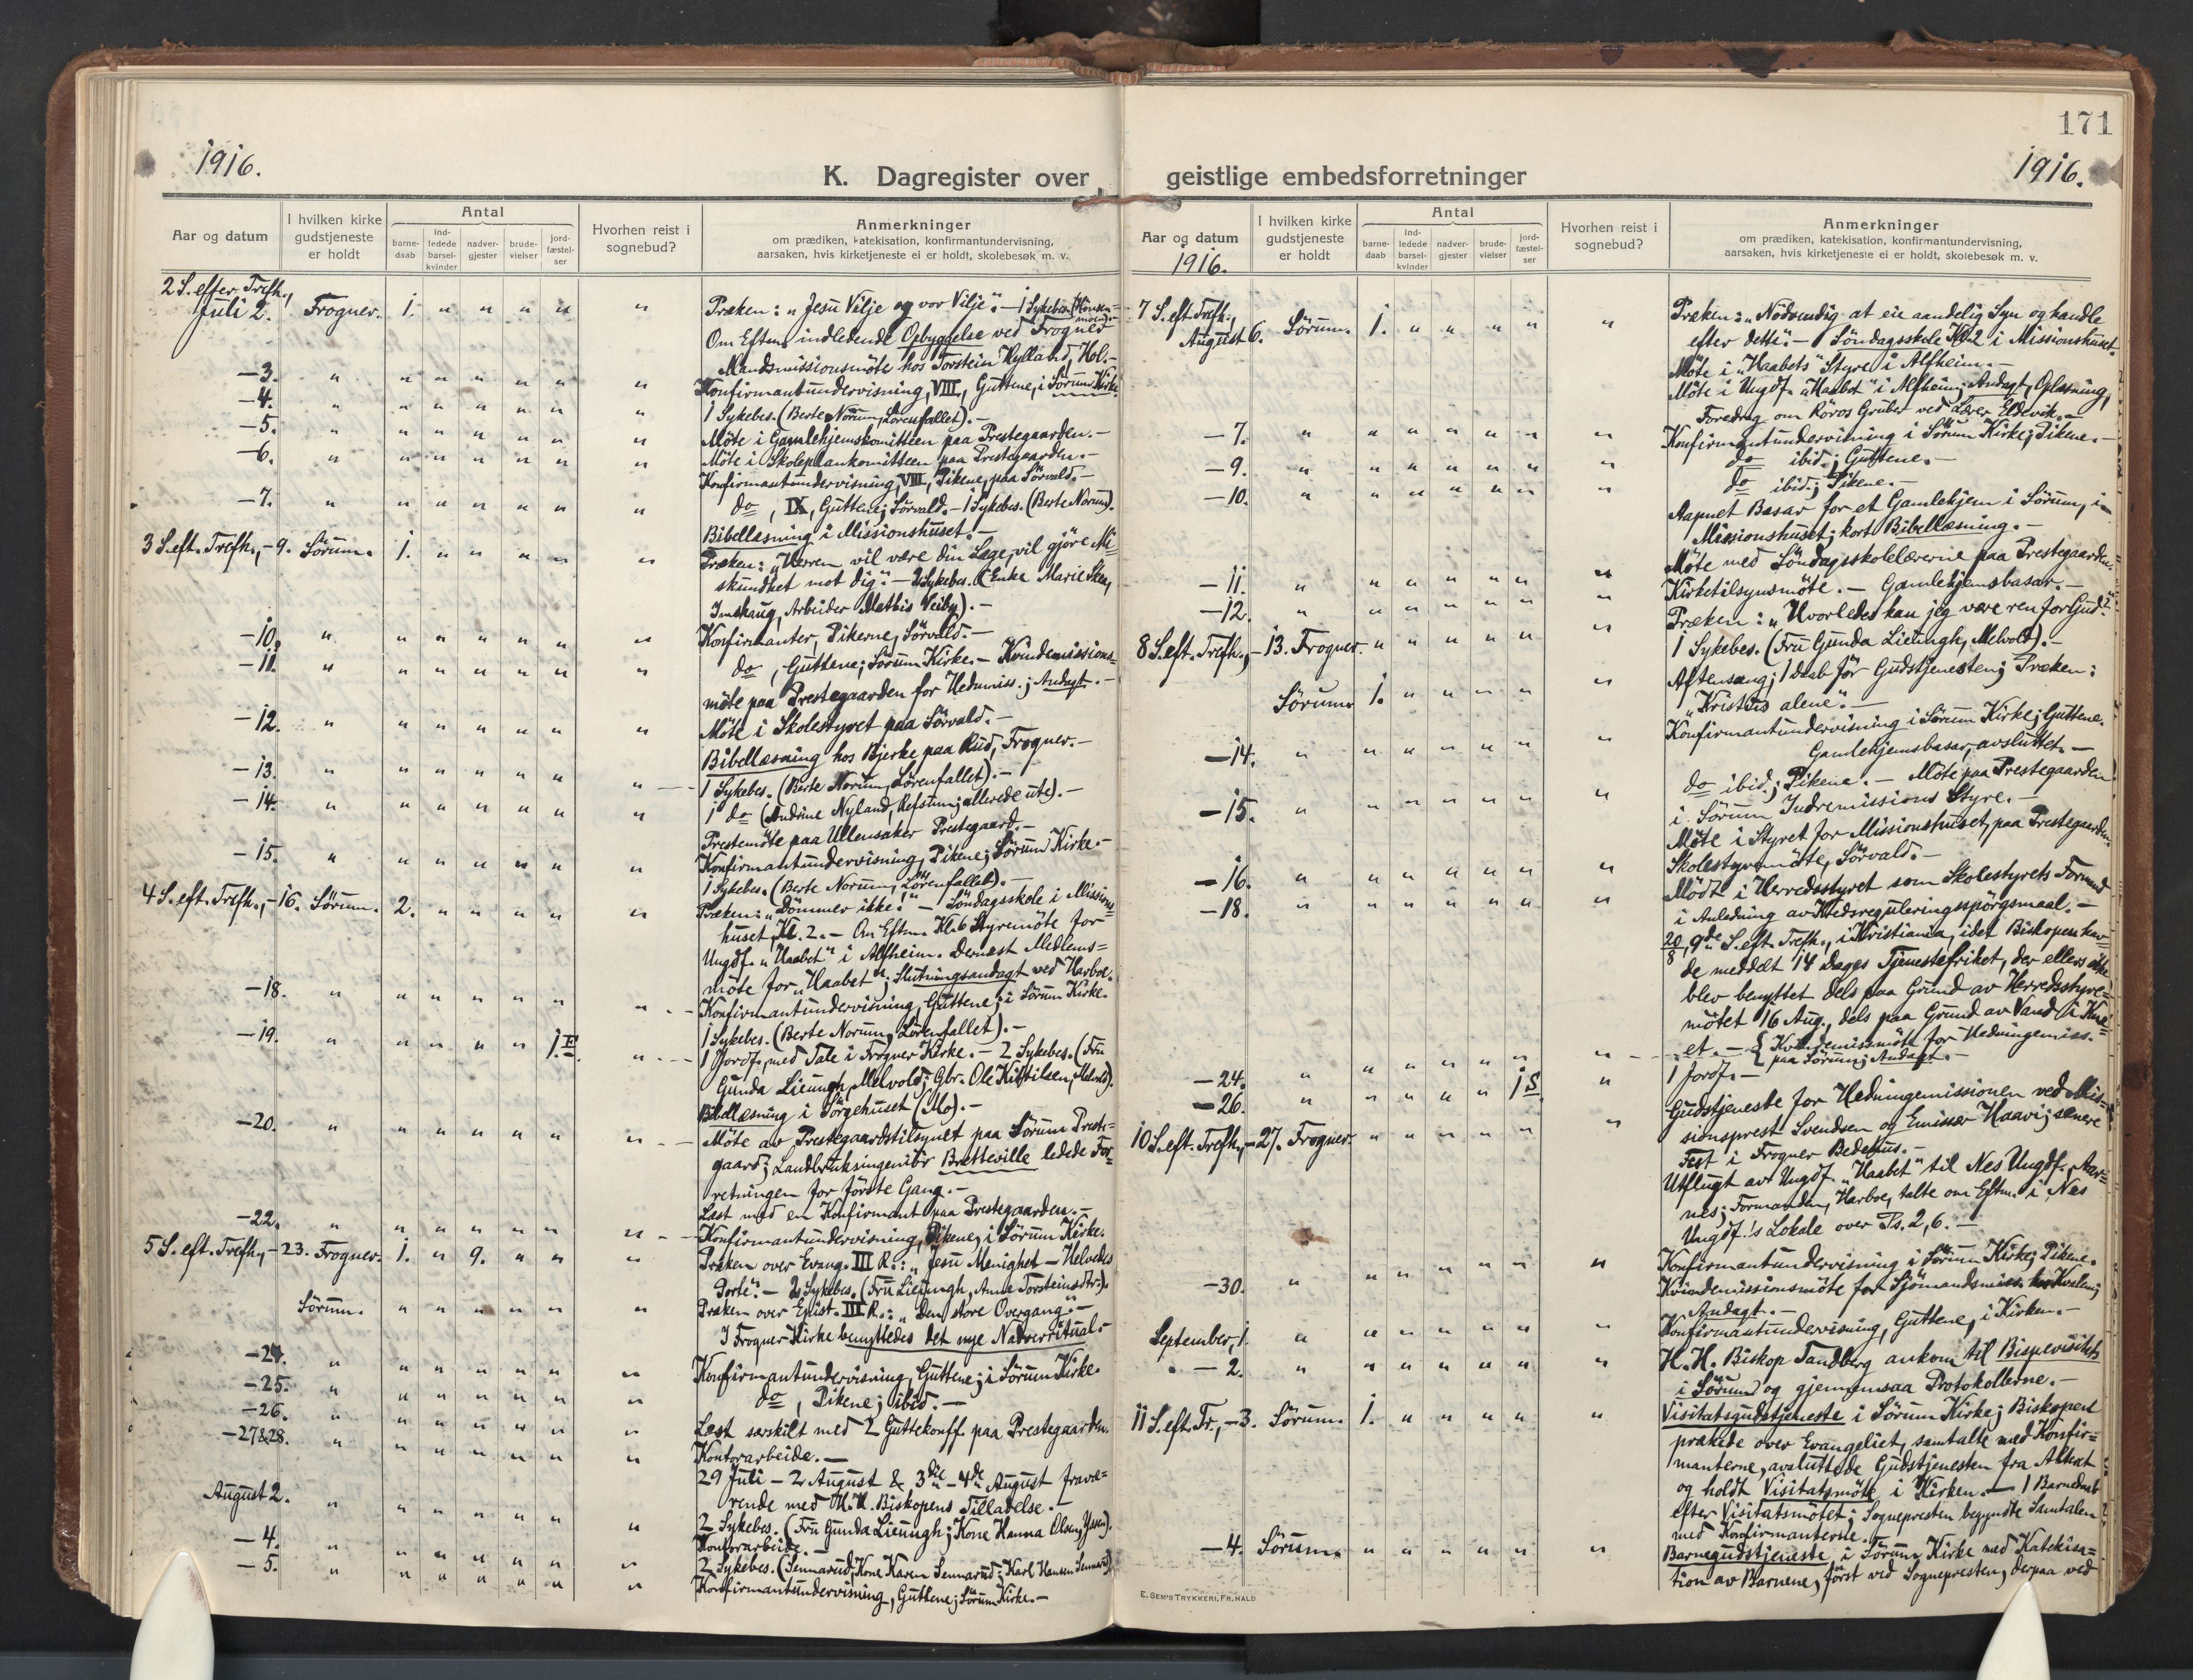 171
1916.
K. Dagregister over
Aar og datum
I hvilken kirke
gudstjeneste
er holdt
Antal
barne-
daab
ind-
ledede
barsel-
kvinder
nadver-
gjester
brude-
vielser
jord-
fæstel-
ser
Hvorhen reist i
sognebud?
Anmerkninger
om prædiken, katekisation, konfirmantundervisning,
aarsaken, hvis kirketjeneste ei er holdt, skolebesøk m. v.
2 S. efter Trefh.,
Juli 2. Frogner. 1. " " " " " Præken: "Jesu Vilje og vor Vilje". – 1 Sykebes.
Om Eftm. indledende Opbyggelse ved Frogner
Mandsmissionsmöte hos Torstein Hylland, Hol. –
– 3. " " " " " " " Konfirmantundervisning, VIII, Guttene, i Sörum Kirke.
– 4. " " " " " " " 1 Sykebes. (Berte Norum, Lörenfallet). –
– 5. " " " " " " " Möte i Gamlehjemskomitteen paa Prestegaarden. –
– 6. " " " " " " " Möte i Skoleplankomitteen paa Prestegaarden. –
Konfirmantundervisning, VIII, Pikene, paa Sörvald. –
– 7. " " " " " " " do, IX, Guttene; Sörvald. – 1 Sykebes. (Berte Norum).
Bibellæsning i Missionshuset. –
3 S. eft. Trefh., – 9. Sörum. 1. " " " " " Præken: "Herren vil være din Læge, vil gjöre Mi=
skundhet mot dig". – 2 Sykebes. (Enke Marie
Imshaug, Arbeider Mathis Veiby). –
– 10. " " " " " " " Konfirmanter, Pikerne, Sörvald. –
– 11. " " " " " " " do, Guttene; Sörum Kirke. – Kvindemissions=
möte paa Prestegaarden for Hedmiss.; Andagt. –
– 12. " " " " " " " Möte i Skolestyret paa Sörvald. –
Bibellæsning hos Bjerke paa Rud, Frogner. –
– 13. " " " " " " " 1 Sykebes. (Berte Norum, Lörenfallet). –
– 14. " " " " " " " 1 do (Andrine Nyland, Refsum; allerede ute). –
Prestemöte paa Ullensaker Prestegaard. –
– 15. " " " " " " " Konfirmantundervisning, Pikene; Sörum Kirke. –
1 Sykebes. (Berte Norum, Lörenfallet). –
4 S. eft. Trefh., – 16. Sörum. 2. " " " " " Præken: "Dömmer ikke!" – Söndagsskole i Missions=
huset, Kl. 2. – Om Eftm. Kl. 6 Styremöte for
Ungdf. "Haabet" i Alfheim. Dernæst Medlems=
möte for "Haabet"; Slutningsandagt ved Harboe.
– 18. " " " " " " " Konfirmantundervisning, Guttene; i Sörum Kirke.
1 Sykebes. (Berte Norum, Lörenfallet). –
– 19. " " " " " 1 F. " 1 Jordf., med Tale i Frogner Kirke. – 2 Sykebes. (Fru
Gunda Lieungh, Melvold; Gbr. Ole Kittilsen,
Bibellæsning i Sörgehuset (Mo). –
– 20. " " " " " " " Möte av Prestegaardstilsynet paa Sörum Preste=
gaard; Landbruksingeniör Bretteville ledede For=
retningen for förste Gang. –
Læst med en Konfirmant paa Prestegaarden. –
– 22. " " " " " " " Konfirmantundervisning, Pikene, i Sörum Kirke.
5 S. eft. Trefh., – 23. Frogner. 1. " 9. " " " Præken over Evang. III R.: "Jesu Menighet – Helvedes
Porte". – 2 Sykebes. (Fru Lieungh, Anne Torsteinsdtr.).
Sörum. " " " " " " Præken over Epist. III R.: "Den store Overgang". –
I Frogner Kirke benyttedes det nye Nadverritual. –
– 24. " " " " " " " Konfirmantundervisning, Guttene; i Sörum Kirke.
– 25. " " " " " " " do, Pikene; ibid. –
– 26. " " " " " " " Læst særskilt med 2 Guttekonff. paa Prestegaarden.
– 27 & 28. " " " " " " " Kontorarbeide. –
29 Juli – 2 August & 3die – 4de August fravæ=
rende med H. H. Biskopens Tilladelse. –
August 2. " " " " " " " 2 Sykebes. (Fru Gunda Lieungh; Kone Hanna Olsen,
– 4. " " " " " " " Kontorarbeide. –
2 Sykebes. (Sennerud, Kone Karen Sennerud; Karl Hansen
– 5. " " " " " " " Konfirmantundervisning, Guttene; Sörum Kirke. –
geistlige embedsforretninger
1916.
Aar og datum
1916.
I hvilken kirke
gudstjeneste
er holdt
Antal
barne-
daab
ind-
ledede
barsel-
kvinder
nadver-
gjester
brude-
vielser
jord-
fæstel-
ser
Hvorhen reist i
sognebud?
Anmerkninger
om prædiken, katekisation, konfirmantundervisning,
aarsaken, hvis kirketjeneste ei er holdt, skolebesøk m. v.
7 S. eft. Trefh.,
August 6. Sörum. 1. " " " " " Præken: "Nödvendig at eie aandelig Syn og handle
efter dette". – Söndagsskole Kl. 2 i Missionshuset.
Möte i "Haabets" Styre i Alfheim. –
Möte i Ungdf. "Haabet" i Alfheim; Andagt, Oplæsning,
Foredrag om Röros Gruber ved Lærer Eldevik. –
– 7. " " " " " " " Konfirmantundervisning i Sörum Kirke; Pikene. –
– 9. " " " " " " " do ibid.; Guttene. –
– 10. " " " " " " " do ibid.; Pikene. –
Aapnet Basar for et Gamlehjem i Sörum, i
Missionshuset; kort Bibellæsning. –
Möte med Söndagsskolelærerne paa Prestegaarden.
– 11. " " " " " " " Kirketilsynsmöte. – Gamlehjemsbasar. –
– 12. " " " " " " "
8 S. eft. Trefh., – 13. Frogner. " " " " " " Præken: "Hvorledes kan jeg være ren for Gud?"
1 Sykebes. (Fru Gunda Lieungh, Melvold). –
Sörum 1. " " " " " Aftensang; 1 daab för Gudstjenesten; Præken:
"Kristus alene". –
– 14. " " " " " " " Konfirmantundervisning i Sörum Kirke; Guttene.
Gamlehjemsbasar, avsluttet. –
– 15. " " " " " " " do ibid.; Pikene. – Möte paa Prestegaarden
i Sörum Indremissions Styre. –
Möte i Styret for Missionshuset, paa Prestegaarden.
Skolestyremöte, Sörvald. –
– 16. " " " " " " " Mödt i Herredsstyret som Skolestyrets Formand
– 18. " " " " " " " i Anledning av Kredsreguleringsspörgsmaal. –
20/8, 9de S. eft. Trefh., i Kristiania, idet Biskopen hav=
de meddelt 14 Dages Tjenestefrihet, der ellers ikke
blev benyttet dels paa Grund av Herredsstyre=
mötet 16 Aug., dels paa Grund av Vand i Knæ=
et. – { Kvindemissmöte for Hedningemiss.
paa Sörum; Andagt. –
– 24. " " " " " " "
– 26. " " " " " 1 S. " 1 Jordf. –
10 S. eft. Trefh., – 27. Frogner " " " " " " Gudstjeneste for Hedningemissionen ved Mis=
sionsprest Svendsen og Emissær Haavi; senere
Fest i Frogner Bedehus. –
Utflugt av Ungdf. "Haabet" til Nes Ungdf., Aar=
nes; Formanden, Harboe, talte om Eftm. i Nes
Ungdf.'s Lokale over Ps. 2, 6. –
– 30. " " " " " " " Konfirmantundervisning i Sörum Kirke; Pikene.
Kvindemissionsmöte for Sjömandsmiss. hos Kvalen;
Andagt. –
September, 1. " " " " " " " Konfirmantundervisning, Guttene, i Kirken. –
– 2. " " " " " " " H. H. Biskop Tandberg ankom til Bispevisitats
i Sörum og gjennemsaa Protokollerne. –
11 S. eft. Tr., – 3. Sörum. 1. " " " " " Visitatsgudstjeneste i Sörum Kirke; Biskopen
prækede over Evangeliet, samtalte med Konfir=
manterne, avsluttede Gudstjenesten fra Alteret
og holdt Visitatsmöte i Kirken. – 1 Barnedaab
efter Visitatsmötet; Sognepresten begyndte Samtalen
med Konfirmanterne. –
– 4. Sörum. " " " " " " Barnegudstjeneste, i Sörum Kirke med Katekisa=
tion av Barnene, först ved Sognepresten, derpaa ved
E. SEM'S TRYKKERI, FR.HALD